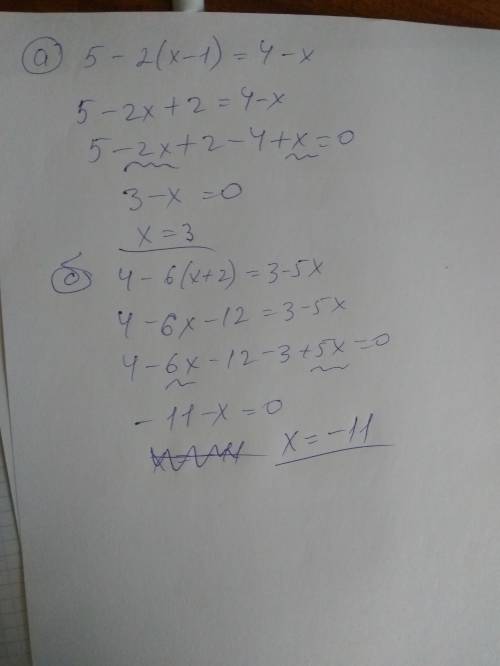 а) 5 - 2(x-1) = 4 - x
5 - 2x + 2 = 4 - x
5 - 2x + 2 - 4 + x = 0
3 - x = 0
x = 3
б) 4 - 6(x+2) = 3 - 5x
4 - 6x - 12 = 3 - 5x
4 - 6x - 12 - 3 + 5x = 0
- 11 - x = 0
x = -11